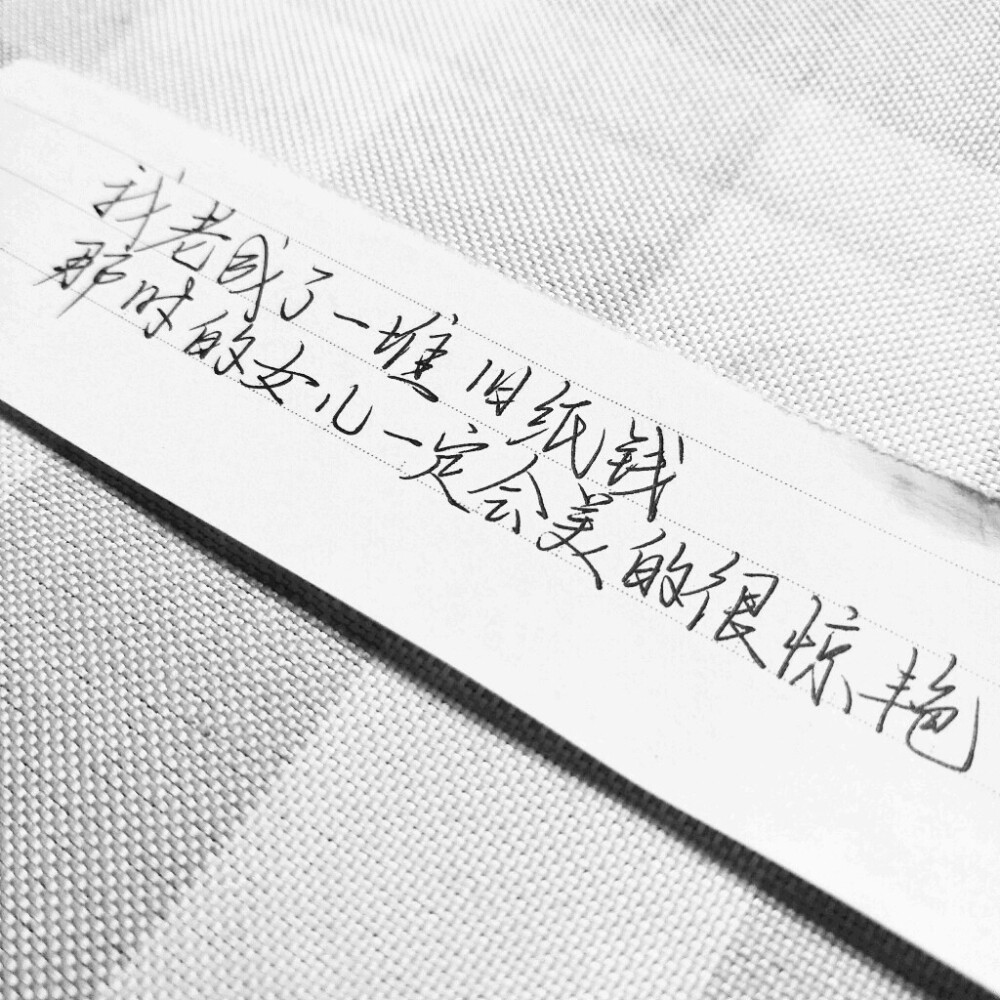 我老成了一堆旧纸钱
那时的女儿一定会美的很惊艳